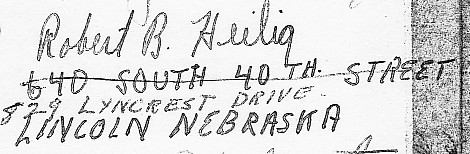 Robert B. Heilig
640 SOUTH 40 TH. STREET
829 LYNCREST DRIVE
LINCOLN NEBRASKA